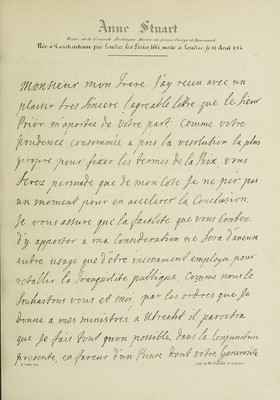 Anne Stuart
Reine de la Grande Bretagne
Née à Londres 1664 morte à Londres le 12 Août 1714
Monsieur mon frere J'ay receu avec un
plaisir tres sincere l'agreable lettre que le Sieur
Prior m'aporte de votre part comme votre
prudence consommée a pris la resolution la plus
propre pour fixer les termes de la Paix vous
serez persuade que de mon Coté Je ne per pas
un moment pour en accelerer la Conclusion,
Je vous assure que la facilité que vous Contez
d'y apporter a ma Consideration ne sera d'aucun
autre usage que d'etre incessament employe pour
retablir la tranquilité publique, Comme nous le
souhaitons vous et moi, par les ordres que Je
donne a mes ministres a Utrecht il paroitra
que Je fais tout mon possible dans la Conjuncture
presente, en faveur d'un Prince dont votre Generosité